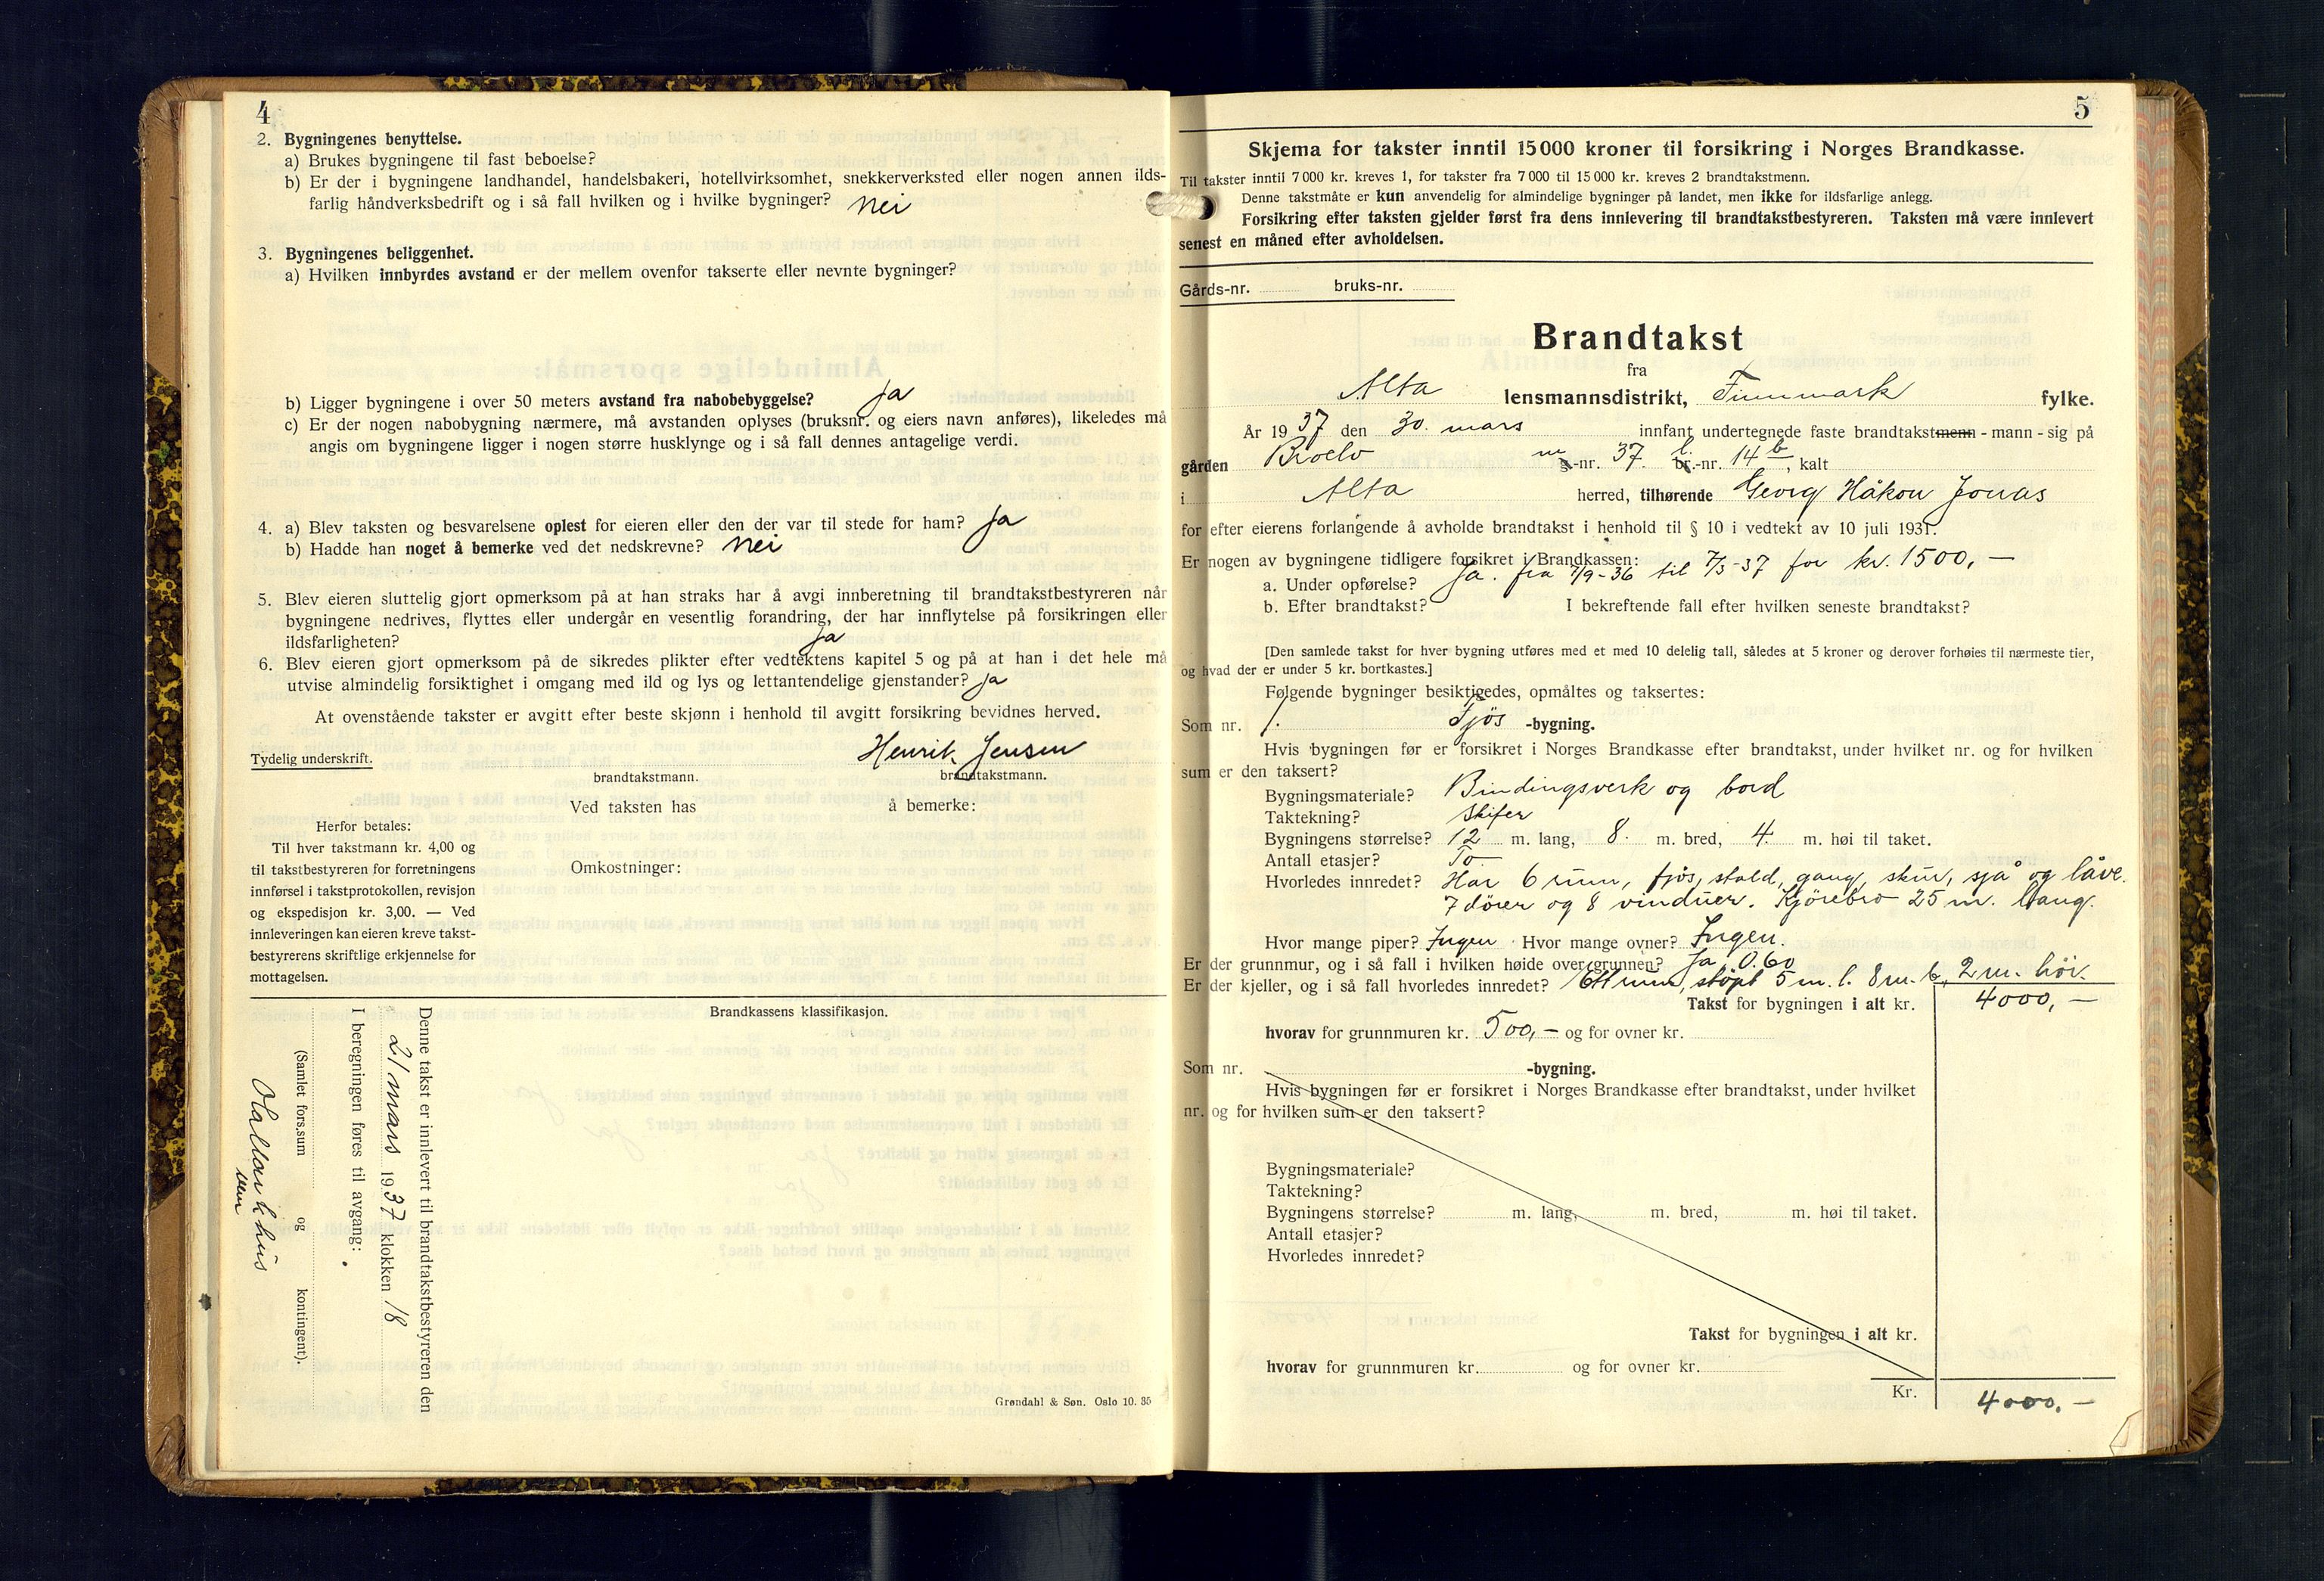 4
2. Bygningenes benyttelse.
a) Brukes bygningene til fast beboelse?
b) Er der i bygningene landhandel, handelsbakeri, hotellvirksomhet, snekkerverksted eller nogen annen ilds-
farlig håndverksbedrift og i så fall hvilken og i hvilke bygninger? Nei
3. Bygningenes beliggenhet.
a) Hvilken innbyrdes avstand er der mellem ovenfor takserte eller nevnte bygninger?
b) Ligger bygningene i over 50 meters avstand fra nabobebyggelse? Ja
c) Er der nogen nabobygning nærmere, må avstanden oplyses (bruksnr. og eiers navn anføres), likeledes må
angis om bygningene ligger i nogen større husklynge og i så fall dennes antagelige verdi.
4. a) Blev taksten og besvarelsene oplest for eieren eller den der var til stede for ham? Ja
b) Hadde han noget å bemerke ved det nedskrevne? Nei
5. Blev eieren sluttelig gjort opmerksom på at han straks har å avgi innberetning til brandtakstbestyreren når
bygningene nedrives, flyttes eller undergår en vesentlig forandring, der har innflytelse på forsikringen eller
ildsfarligheten? Ja
6. Blev eieren gjort opmerksom på de sikredes plikter efter vedtektens kapitel 5 og på at han i det hele må
utvise almindelig forsiktighet i omgang med ild og lys og lettantendelige gjenstander? Ja
At ovenstående takster er avgitt efter beste skjønn i henhold til avgitt forsikring bevidnes herved.
Tydelig underskrift. Henrik Jensen
brandtakstmann. brandtakstmann.
Ved taksten has å bemerke:
Herfor betales:
Til hver takstmann kr. 4,00 og
til takstbestyreren for forretningens
innførsel i takstprotokollen, revisjon
og ekspedisjon kr. 3,00. — Ved
innleveringen kan eieren kreve takst-
bestyrerens skriftlige erkjennelse for
mottagelsen.
Omkostninger:
Brandkassens klassifikasjon.
Denne takst er innlevert til brandtakstbestyreren den
21 mars 1937 klokken 18
I beregningen føres til avgang:
(Samlet fors.sum og kontingent).
Grøndahl & Søn. Oslo 10. 35
5
Skjema for takster inntil 15 000 kroner til forsikring i Norges Brandkasse.
Til takster inntil 7 000 kr. kreves 1, for takster fra 7 000 til 15 000 kr. kreves 2 brandtakstmenn.
Denne takstmåte er kun anvendelig for almindelige bygninger på landet, men ikke for ildsfarlige anlegg.
Forsikring efter taksten gjelder først fra dens innlevering til brandtakstbestyreren. Taksten må være innlevert
senest en måned efter avholdelsen.
Gårds-nr. bruks-nr.
Brandtakst
fra
Alta lensmannsdistrikt, Finnmark fylke.
År 1937 den 30. mars innfant undertegnede faste brandtakstmenn - mann - sig på
gården Broelv m g.-nr. 37. l. br.-nr. 14 b, kalt
i Alta herred, tilhørende Georg Håkon Jonas
for efter eierens forlangende å avholde brandtakst i henhold til § 10 i vedtekt av 10 juli 1931.
Er nogen av bygningene tidligere forsikret i Brandkassen:
a. Under opførelse? Ja. fra 7/9-36 til 7/3-37 for kr. 1500,-
b. Efter brandtakst? I bekreftende fall efter hvilken seneste brandtakst?
[Den samlede takst for hver bygning utføres med et med 10 delelig tall, således at 5 kroner og derover forhøies til nærmeste tier,
og hvad der er under 5 kr. bortkastes.]
Følgende bygninger besiktigedes, opmåltes og taksertes:
Som nr. 1. Fjøs -bygning.
Hvis bygningen før er forsikret i Norges Brandkasse efter brandtakst, under hvilket nr. og for hvilken
sum er den taksert?
Bygningsmateriale? Bindingsverk og bord
Taktekning? Skifer
Bygningens størrelse? 12 m. lang, 8. m. bred, 4. m. høi til taket.
Antall etasjer? To
Hvorledes innredet? Har 6 rum, fjøs, stald, gang, skur, sjå og låve.
7 dører og 8 vinduer. Kjørebro 25 m. lang.
Hvor mange piper? Ingen Hvor mange ovner? Ingen.
Er der grunnmur, og i så fall i hvilken høide over grunnen? Ja, 0.60
Er der kjeller, og i så fall hvorledes innredet? Ett rum, støpt 5 m. l. 8 m. b, 2 m. høi.
Takst for bygningen i alt kr. 4000,-
hvorav for grunnmuren kr. 500,- og for ovner kr.
Som nr. -bygning.
Hvis bygningen før er forsikret i Norges Brandkasse efter brandtakst, under hvilket
nr. og for hvilken sum er den taksert?
Bygningsmateriale?
Taktekning?
Bygningens størrelse? m. lang, m. bred, m. høi til taket.
Antall etasjer?
Hvorledes innredet?
Takst for bygningen i alt kr.
hvorav for grunnmuren kr. og for ovner kr.
Kr. 4000,-